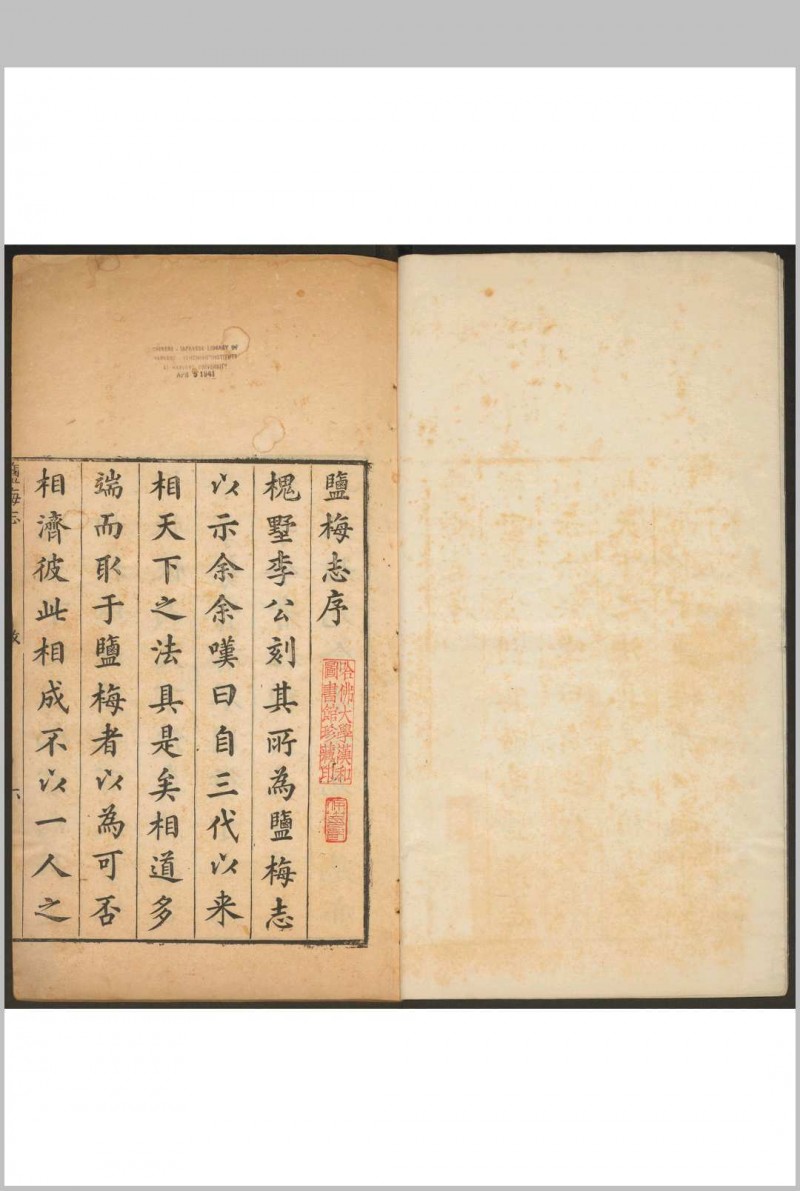 鹽梅志序
槐墅李公刻其所為鹽梅志
以示余余嘆曰自三代以来
相天下之法具是矣相道多
端而取于鹽梅者以為可否
相濟彼此相成不以一人之
哈佛大學漢和
圖書館珍藏印
APR 9 1941